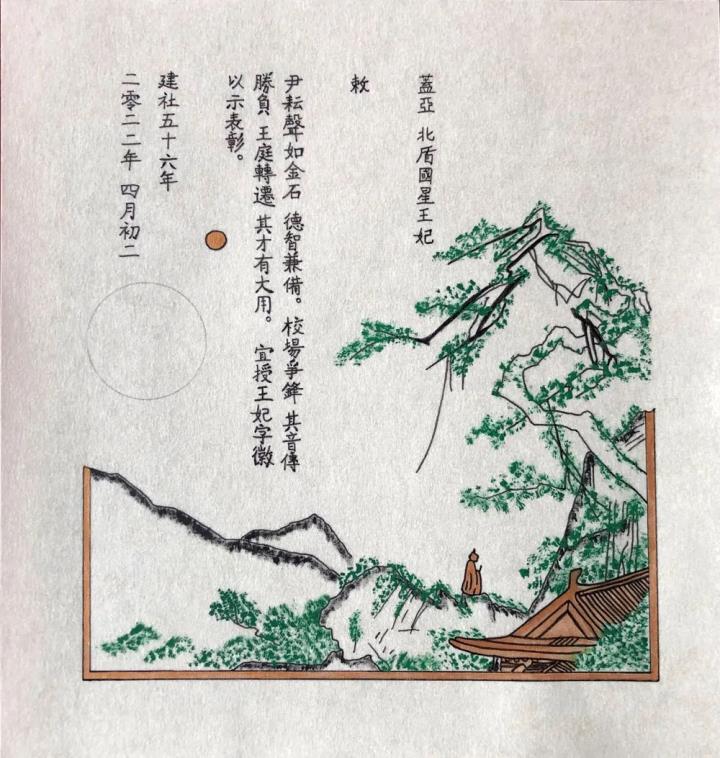 蓋亞 北盾國星王妃
敕
尹耘聲如金石 德智兼備。校場爭鋒 其音傳
勝負 王庭轉遷 其才有大用。 宜授王妃字徽
以示表彰。
建社五十六年
二零二二年 四月初二